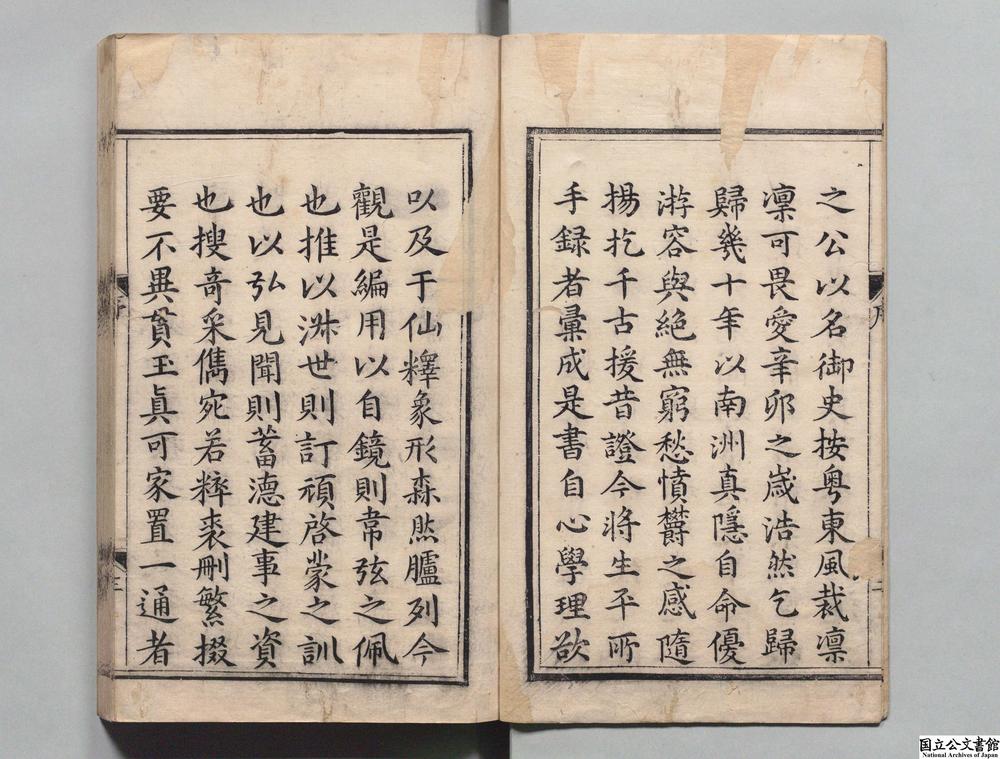 之公以名御史按粤東風裁凛
凛可畏愛辛卯之歳浩然乞歸
歸幾十年以南洲真隱自命優
游容與絶無窮愁憤欝之感隨
揚扢千古援昔證今將生平所
手録者彙成是書自心學理欲
以及于仙釋象形森然臚列今
觀是編用以自鏡則韋弦之佩
也推以淑世則訂頑啓蒙之訓
也以弘見聞則蓄德建事之資
也搜奇采儁宛若粹裘刪繁掇
要不異貧玉真可家置一通者
二
三
国立公文書館
National Archives of Japan